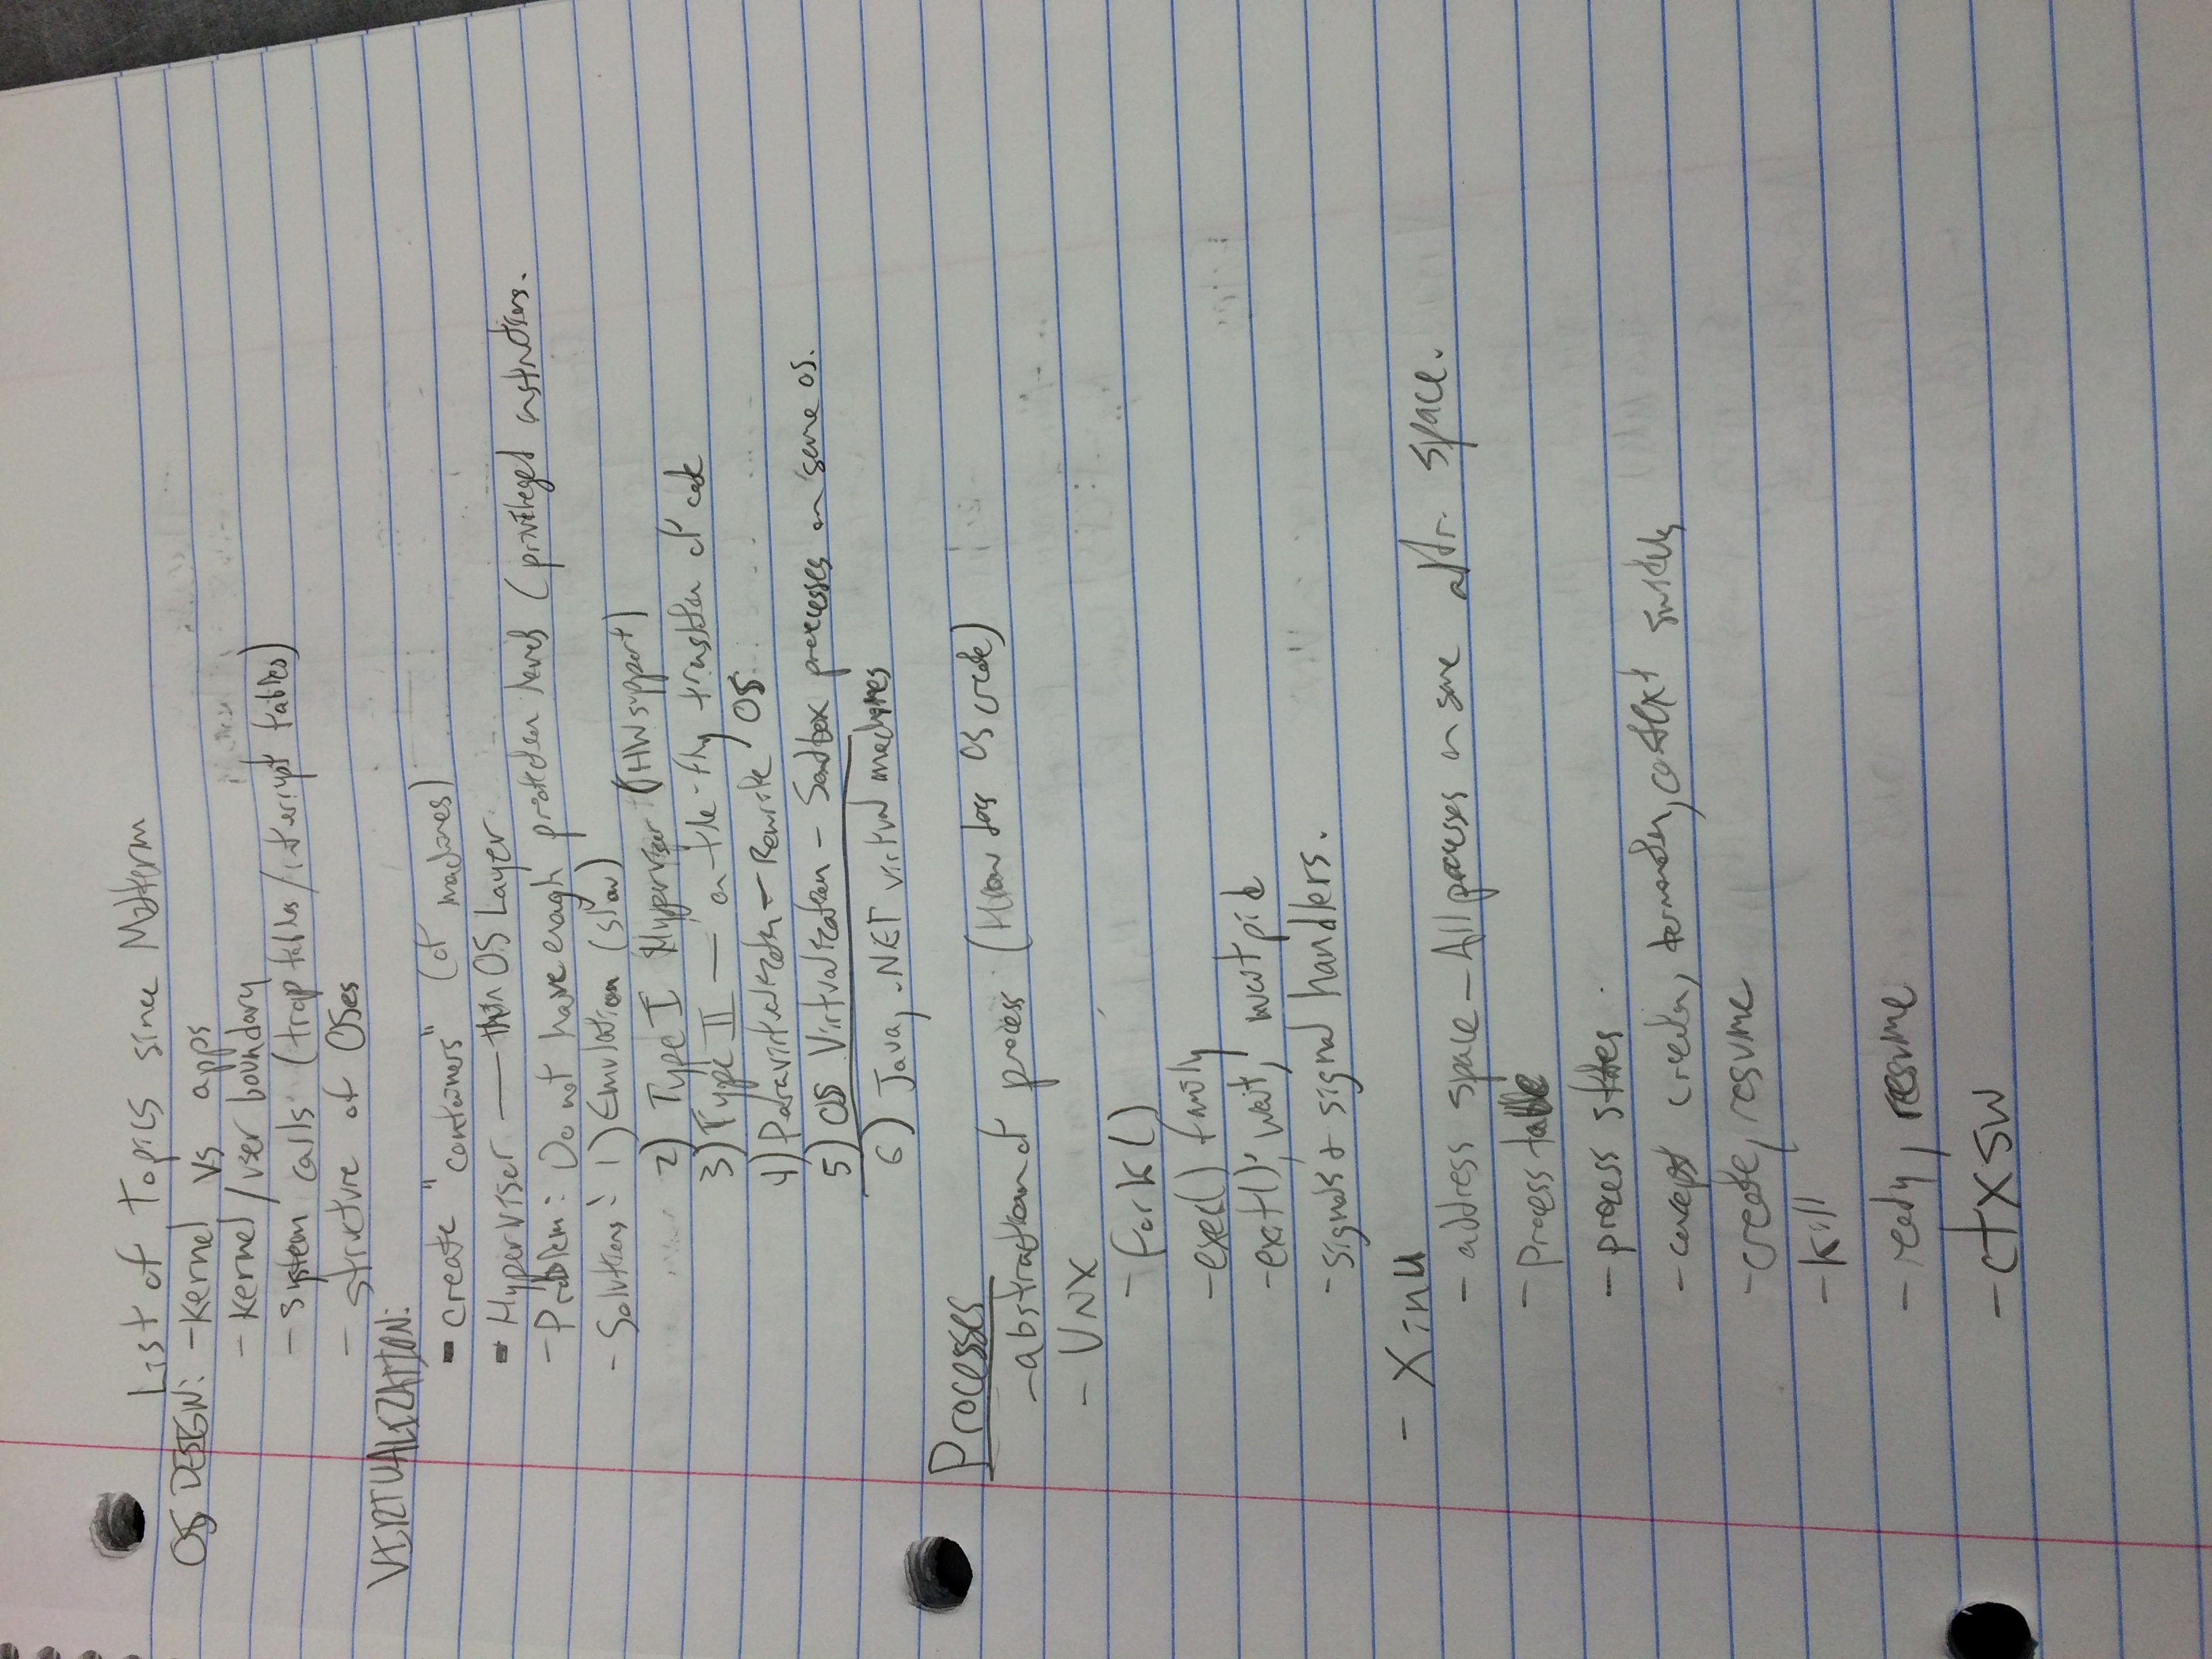 List of Topics since Midterm
OS DESIGN: - Kernel vs apps
- Kernel/user boundary
- System calls (trap tables/interrupt tables)
- structure of OSes
VIRTUALIZATION:
- create "containers" (of machines)
- Hyperviser — thin OS Layer
- Problem: Do not have enough protection levels (privileged instructions.
- Solutions: 1) Emulation (slow)
2) Type I Hyperviser (HW support)
3) Type II — on-the-fly translation of code
4) Paravirtualization - Rewrite OS
5) OS Virtualization - Sandbox processes on same OS.
6) Java, .NET virtual machines
Processes
- abstraction of process (How does OS create)
- UNIX
- fork()
- exec() family
- exit(), wait, waitpid
- signals + signal handlers.
- Xinu
- address space - All processes in same addr. space.
- Process table
- process states
- concept creation, termination, context switch
- create, resume
- kill
- ready, resume
- ctxsw